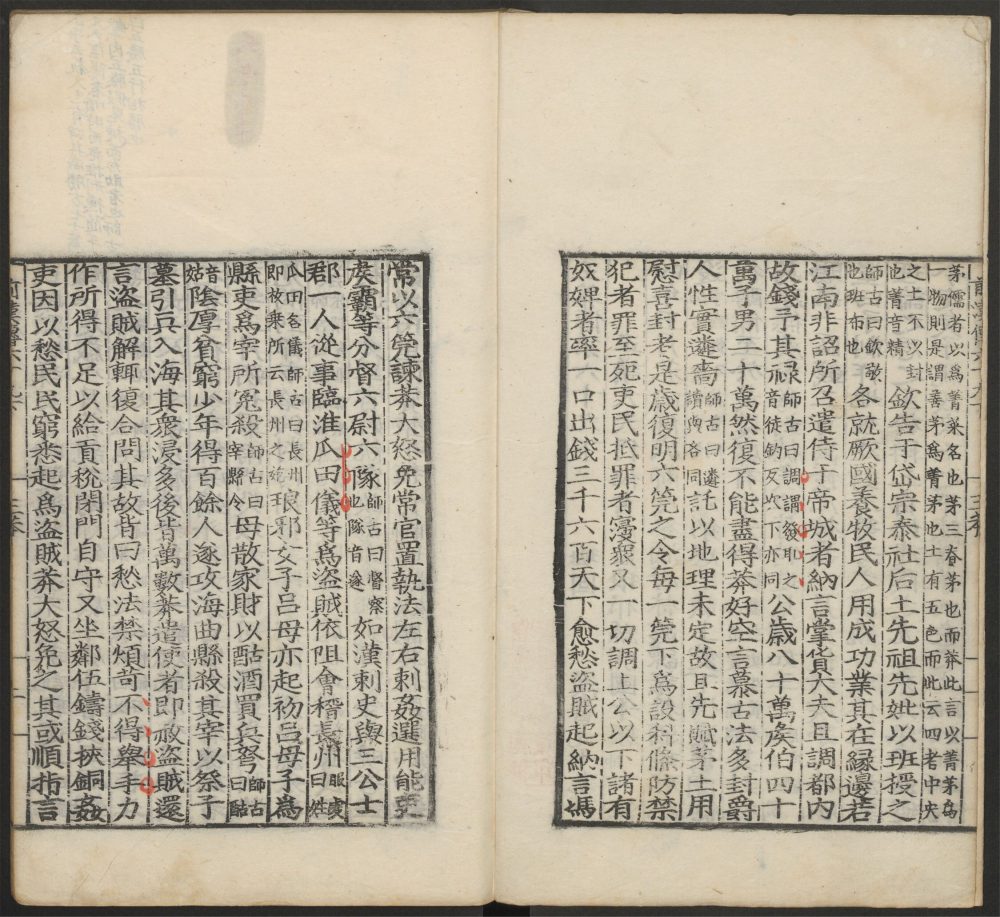 茅儒者以爲菁菜名也茅三脊茅也而莽此言以菁茅爲
一物則是謂善茅爲菁茅也土有五色而此云四者中央
之土不以封
也菁音精
欽告于岱宗泰社后土先祖先妣以班授之
師古曰欽敬
也班布也
各就厥國養牧民人用成功業其在緣邊若
江南非詔所召遣侍于帝城者納言掌貨大夫且調都內
故錢予其祿
師古曰調謂發取之
音徒釣反次下亦同
公歲八十萬侯伯四十
萬子男二十萬然復不能盡得莽好空言慕古法多封爵
人性實遴嗇
師古曰遴
讀與吝同
託以地理未定故且先賦茅土用
慰喜封者是歲復明六筦之令每一筦下爲設科條防禁
犯者罪至死吏民抵罪者寖衆又一切調上公以下諸有
奴婢者率一口出錢三千六百天下愈愁盜賊起納言馮
常以六筦諫莽大怒免常官置執法左右刺姦選用能吏
侯霸等分督六尉六隊
師古曰督察
也隊音遂
如漢刺史與三公士
郡一人從事臨淮瓜田儀等爲盜賊依阻會稽長州
服虔
曰姓
瓜田名儀師古曰長州
即枚乘所云長州之苑
琅邪女子呂母亦起初呂母子爲
縣吏爲宰所冤殺
師古曰
宰縣令
母散家財以酤酒買兵弩
師古
曰酤
音
姑
陰厚貧窮少年得百餘人遂攻海曲縣殺其宰以祭子
墓引兵入海其衆浸多後皆萬數莽遣使者即赦盜賊還
言盜賊解輒復合問其故皆曰愁法禁煩苛不得舉手力
作所得不足以給貢稅閉門自守又坐鄰伍鑄錢挾銅姦
吏因以愁民民窮悉起爲盜賊莽大怒免之其或順指言